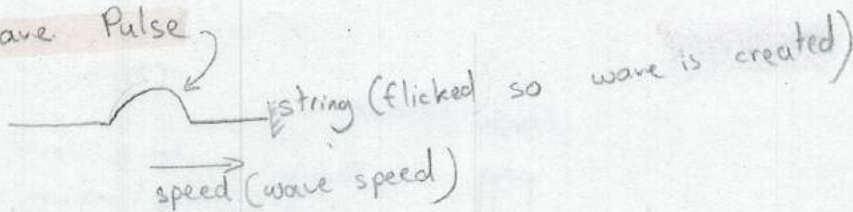 ave Pulse
string (flicked so wave is created)
speed (wave speed)